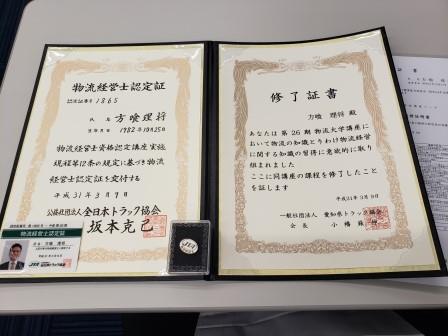 物流経営士認定証
認定証番号 1865
氏名 方喰理将
生年月日 1982年10月25日
物流経営士資格認定講座実施
規程第12条の規定に基づき物流
経営士認定証を交付する
平成31年3月9日
公益社団法人 全日本トラック協会
坂本克己
物流経営士認定証
JTA
修了証書
方喰 理将 殿
あなたは第26期物流大学講座に
おいて物流の知識とりわけ物流経営
に関する知識の習得に意欲的に取り
組まれました
ここに同講座の課程を修了したこと
を証します
平成31年3月9日
一般社団法人 愛知県トラック協会
会長 小幡